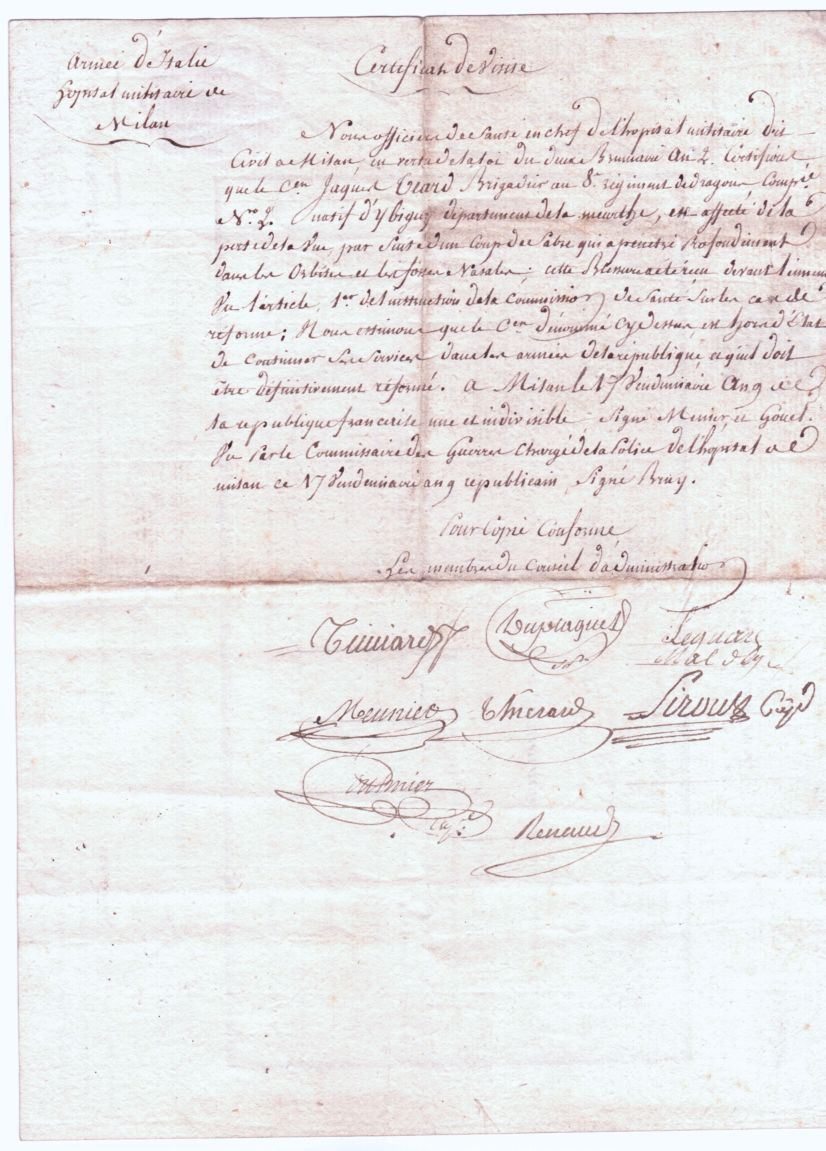 Armée d'Italie
hopital militaire de
Milan
Certificat de Visite
Nous officiers de Santé en chef de l'hopital militaire dit
Civil a Milan, en vertu de la loi du deux Brumaire An 2. Certifions
que le Cen Jaques Erard Brigadier au 8e régiment de dragons Compie
No 2. natif d' département de la meurthe, est affecté de la
perte de la Vue, par Suite d'un Coup de Sabre qui a penetré Profondément
dans les Orbites et les fosses Nasales; cette Blessure a été recu devant l'ennemi
Vu l'article 1er de l'instruction de la Commission de Santé Sur les cas de
réforme; Nous estimons que le Cen dénommé Cy dessus, est hors d'État
de Continuer Ses Services dans les armées de la république et qu'il doit
être définitivement réformé. A Milan le 17 Vendemiaire An 9 de
la republique francaise une et indivisible - Signé Menier et Gouet.
Vu Par le Commissaire des Guerres Chargé de la Police de l'hopital de
milan ce 17 Vendemiaire an 9 republicain, Signé Bruy.
Pour Copie Conforme
Les membres du Conseil d'administration
Duplaquet
Meunier Therard Siroux
Renaud